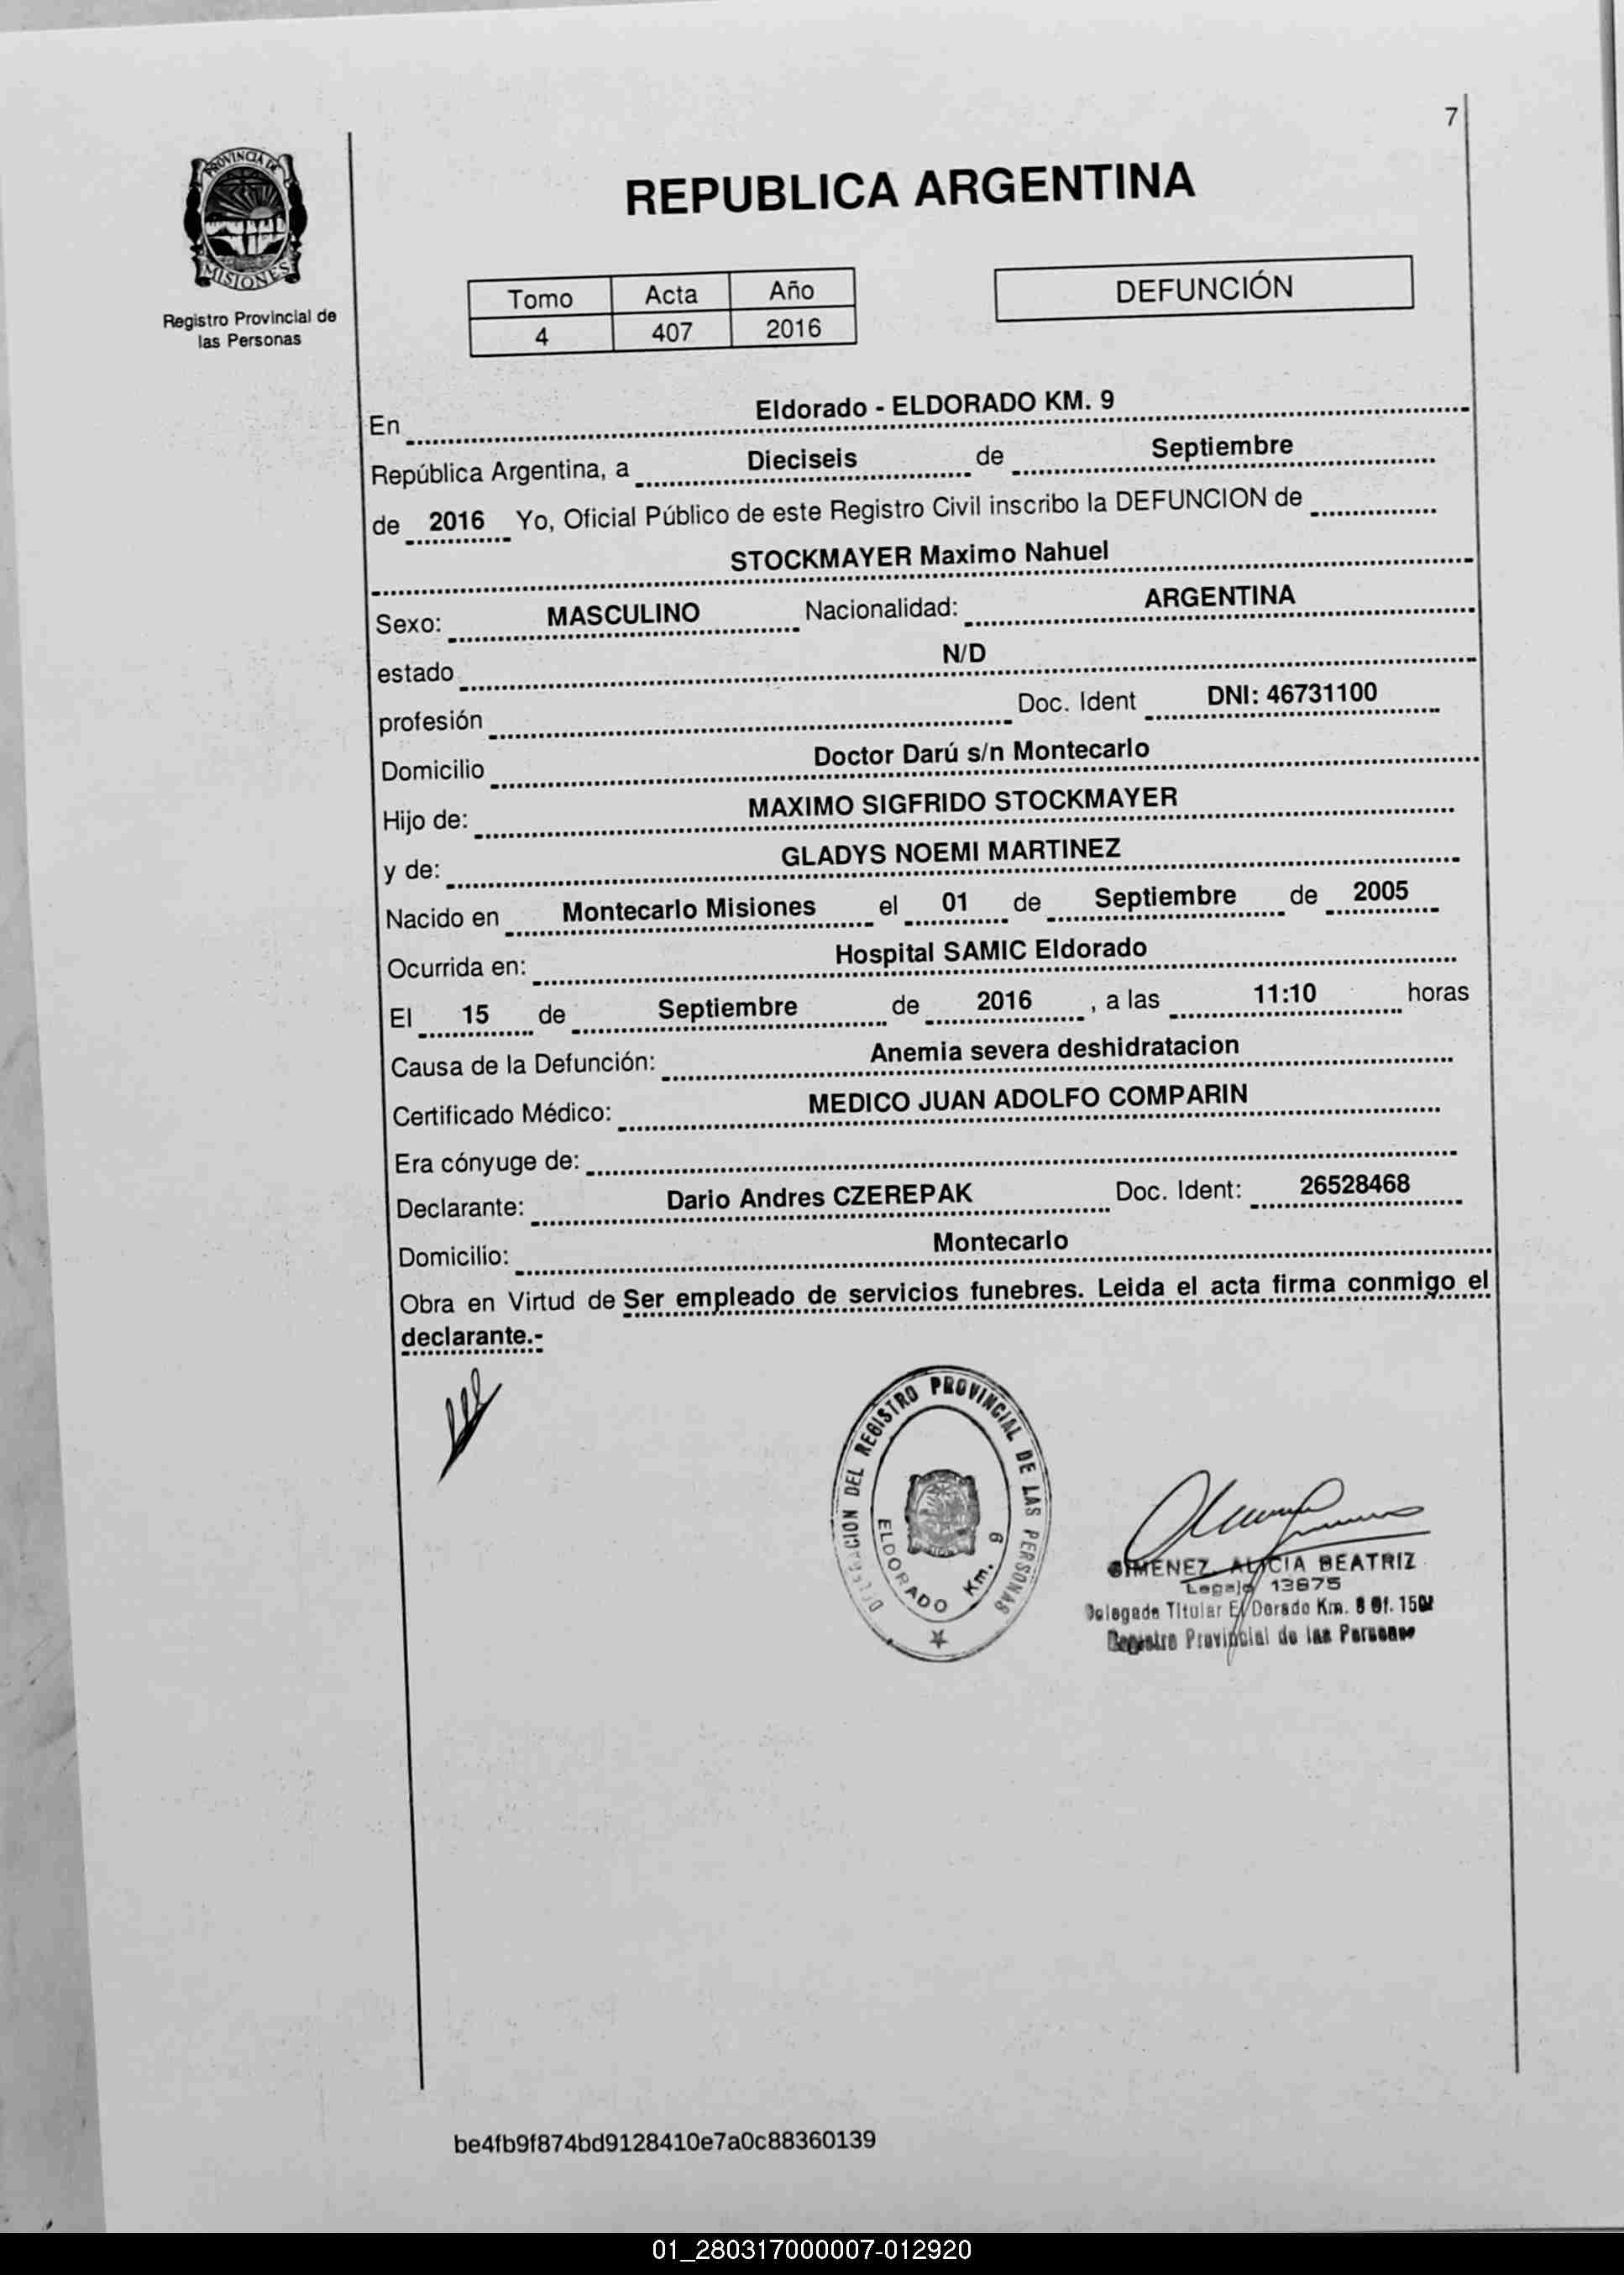 7
PROVINCIA DE
MISIONES
Registro Provincial de
las Personas
REPUBLICA ARGENTINA
Tomo Acta Año
4 407 2016
DEFUNCIÓN
En Eldorado - ELDORADO KM. 9
República Argentina, a Dieciseis de Septiembre
de 2016 Yo, Oficial Público de este Registro Civil inscribo la DEFUNCION de
STOCKMAYER Maximo Nahuel
Sexo: MASCULINO Nacionalidad: ARGENTINA
estado N/D
profesión Doc. Ident DNI: 46731100
Domicilio Doctor Darú s/n Montecarlo
Hijo de: MAXIMO SIGFRIDO STOCKMAYER
y de: GLADYS NOEMI MARTINEZ
Nacido en Montecarlo Misiones el 01 de Septiembre de 2005
Ocurrida en: Hospital SAMIC Eldorado
El 15 de Septiembre de 2016 , a las 11:10 horas
Causa de la Defunción: Anemia severa deshidratacion
Certificado Médico: MEDICO JUAN ADOLFO COMPARIN
Era cónyuge de:
Declarante: Dario Andres CZEREPAK Doc. Ident: 26528468
Domicilio: Montecarlo
Obra en Virtud de Ser empleado de servicios funebres. Leida el acta firma conmigo el
declarante.-
DELEGACION DEL REGISTRO PROVINCIAL DE LAS PERSONAS
ELDORADO Km. 9
GIMENEZ, ALICIA BEATRIZ
Legajo 13875
Delegada Titular El Dorado Km.
Registro Provincial de las Personas
be4fb9f874bd9128410e7a0c88360139
01_280317000007-012920